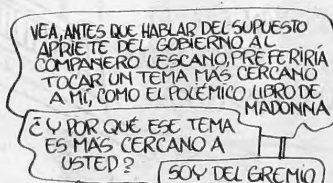 VEA, ANTES QUE HABLAR DEL SUPUESTO
APRIETE DEL GOBIERNO AL
COMPAÑERO LESCANO, PREFERIRÍA
TOCAR UN TEMA MÁS CERCANO
A MÍ, COMO EL POLÉMICO LIBRO DE
MADONNA
¿Y POR QUÉ ESE TEMA
ES MÁS CERCANO A
USTED?
SOY DEL GREMIO